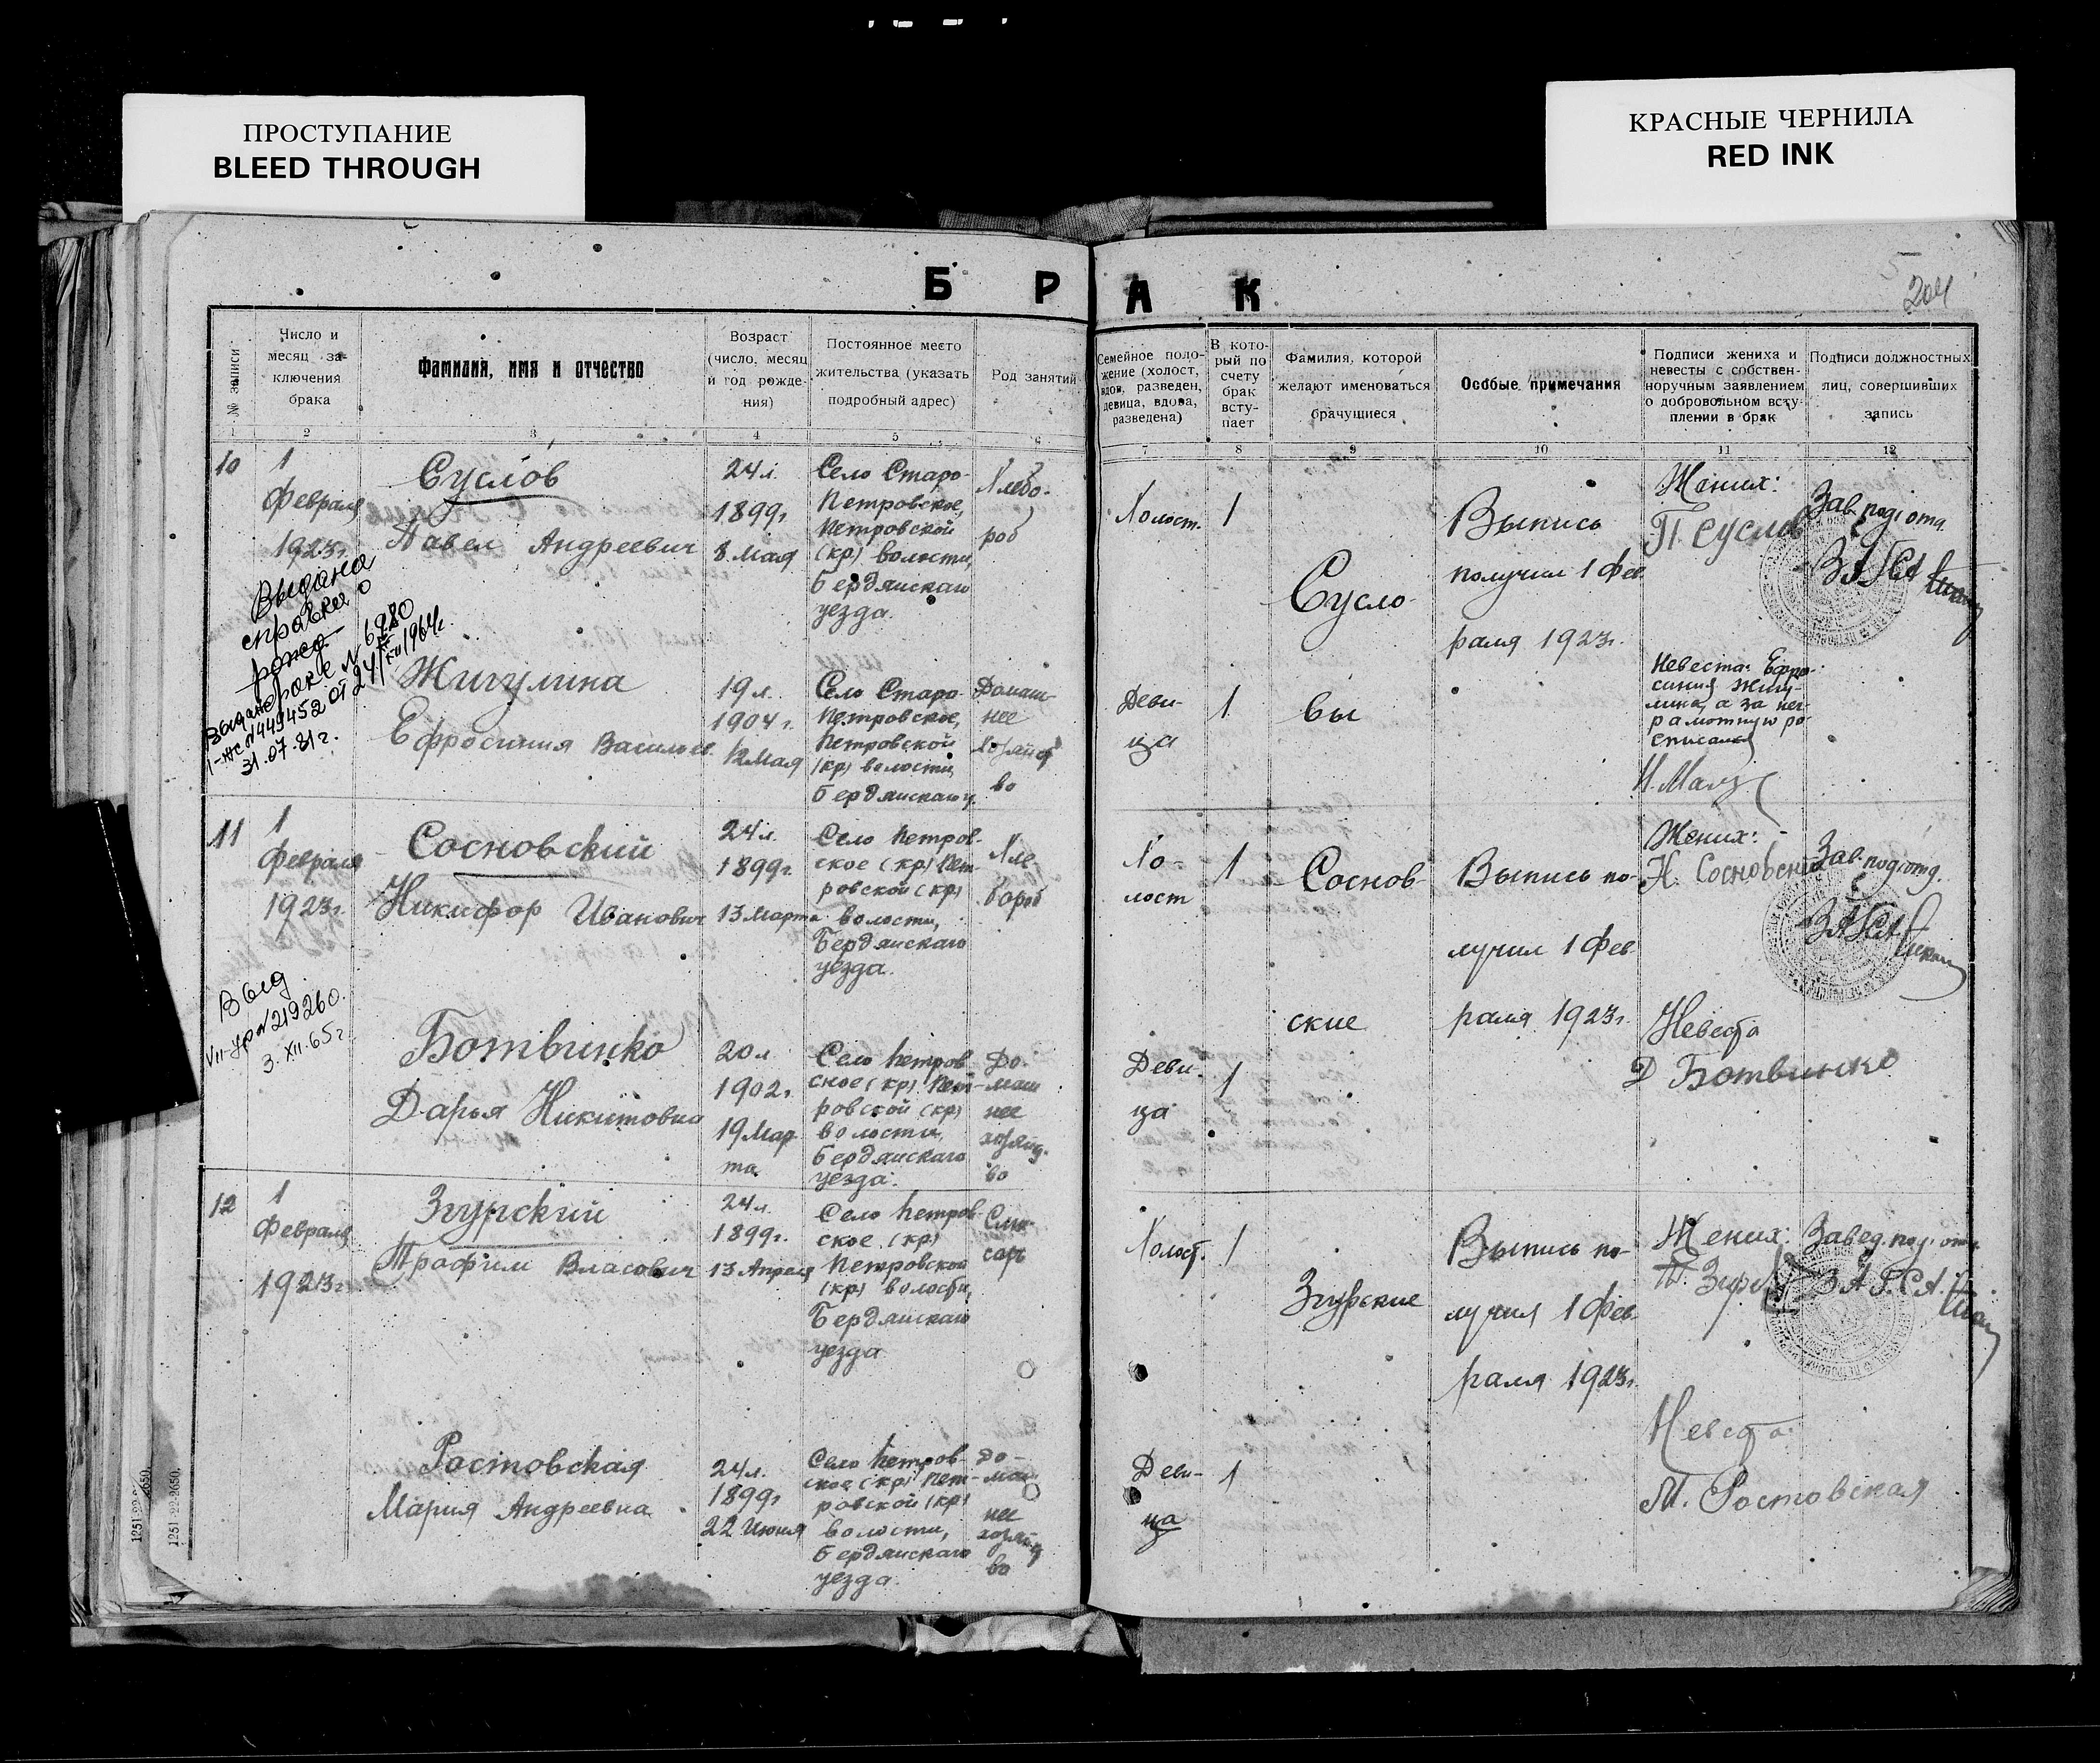 ПРОСТУПАНИЕ
BLEED THROUGH
КРАСНЫЕ ЧЕРНИЛА
RED INK
Б Р А К
204
№ записи
Число и
месяц за-
ключения
брака
Фамилия, имя и отчество
Возраст
(число, месяц
и год рожде-
ния)
Постоянное место
жительства (указать
подробный адрес)
Род занятий
Семейное поло-
жение (холост,
вдов, разведен,
девица, вдова,
разведена)
В кото-
рый по
счету
брак
всту-
пает
Фамилия, которой
желают именоваться
брачущиеся
Особые примечания
Подписи жениха и
невесты с собствен-
норучным заявлением
о добровольном всту-
плении в брак
Подписи должностных
лиц, совершивших
запись
1 2 3 4 5 6 7 8 9 10 11 12
10
1
Февраля
1923г.
Суслов
Павел Андреевич
24л.
1899г
8 Мая
Село Старо-
Петровское,
Петровской
(кр) волости,
Бердянскаго
уезда.
Хлебо-
роб
Холост.
1
Сусло-
Выпись
получил 1 Фев
раля 1923г.
Жених:
П Суслов
Зав. подотд.
ЗАГСА
Выдана
справка о
Выдано
31.07.81г.
Жигулина
Ефросиния Васильев.
19л.
1904г.
12 Мая
Село Старо-
Петровское,
Петровской
(кр) волости,
Бердянскаго у.
Домаш-
нее
хозяйст
во
Деви-
ца
1
вы
Невеста: Ефро-
синия Жигу-
лина, а за не-
грамотную ро-
списался
11
1
Февраля
1923г.
Сосновский
Никифор Иванович
24л.
1899г.
13 Марта
Село Петров-
ское (кр) Пет-
ровской (кр)
волости,
Бердянскаго
уезда.
Хле-
бороб
Хо-
лост
1
Соснов-
Выпись по-
лучил 1 Фев-
раля 1923г.
Жених:
Н. Сосновский
Зав. подотд.
ЗАГСА
Выд
VII-УР № 219260.
3.XII.65г.
Ботвинко
Дарья Никитовна
20л
1902г.
19 Мар-
та
Село Петров
ское (кр) Пет-
ровской (кр)
волости,
Бердянскаго
уезда.
До-
маш
нее
хозяйст-
во
Деви-
ца
1
ские
Невеста
Д Ботвинко
12
1
Февраля
1923г.
Згурский
Трофим Власович
24л.
1899г.
13 Апреля
Село Петров-
ское (кр)
Петровской
(кр) волости,
Бердянскаго
уезда
Сле-
сарь
Холост.
1
Згурские
Выпись по-
лучил 1 Фев-
раля 1923г
Жених:
Т. Згурс
Завед. под. отд.
ЗАГСА.
Ростовская
Мария Андреевна
24л.
1899г
22 Июня
Село Петров-
ское (кр) Пет-
ровской (кр)
волости,
Бердянскаго
уезда.
до-
маш
нее
хозяйст
во
Деви-
ца
1
Невеста
М. Ростовская
1251-22-2650.